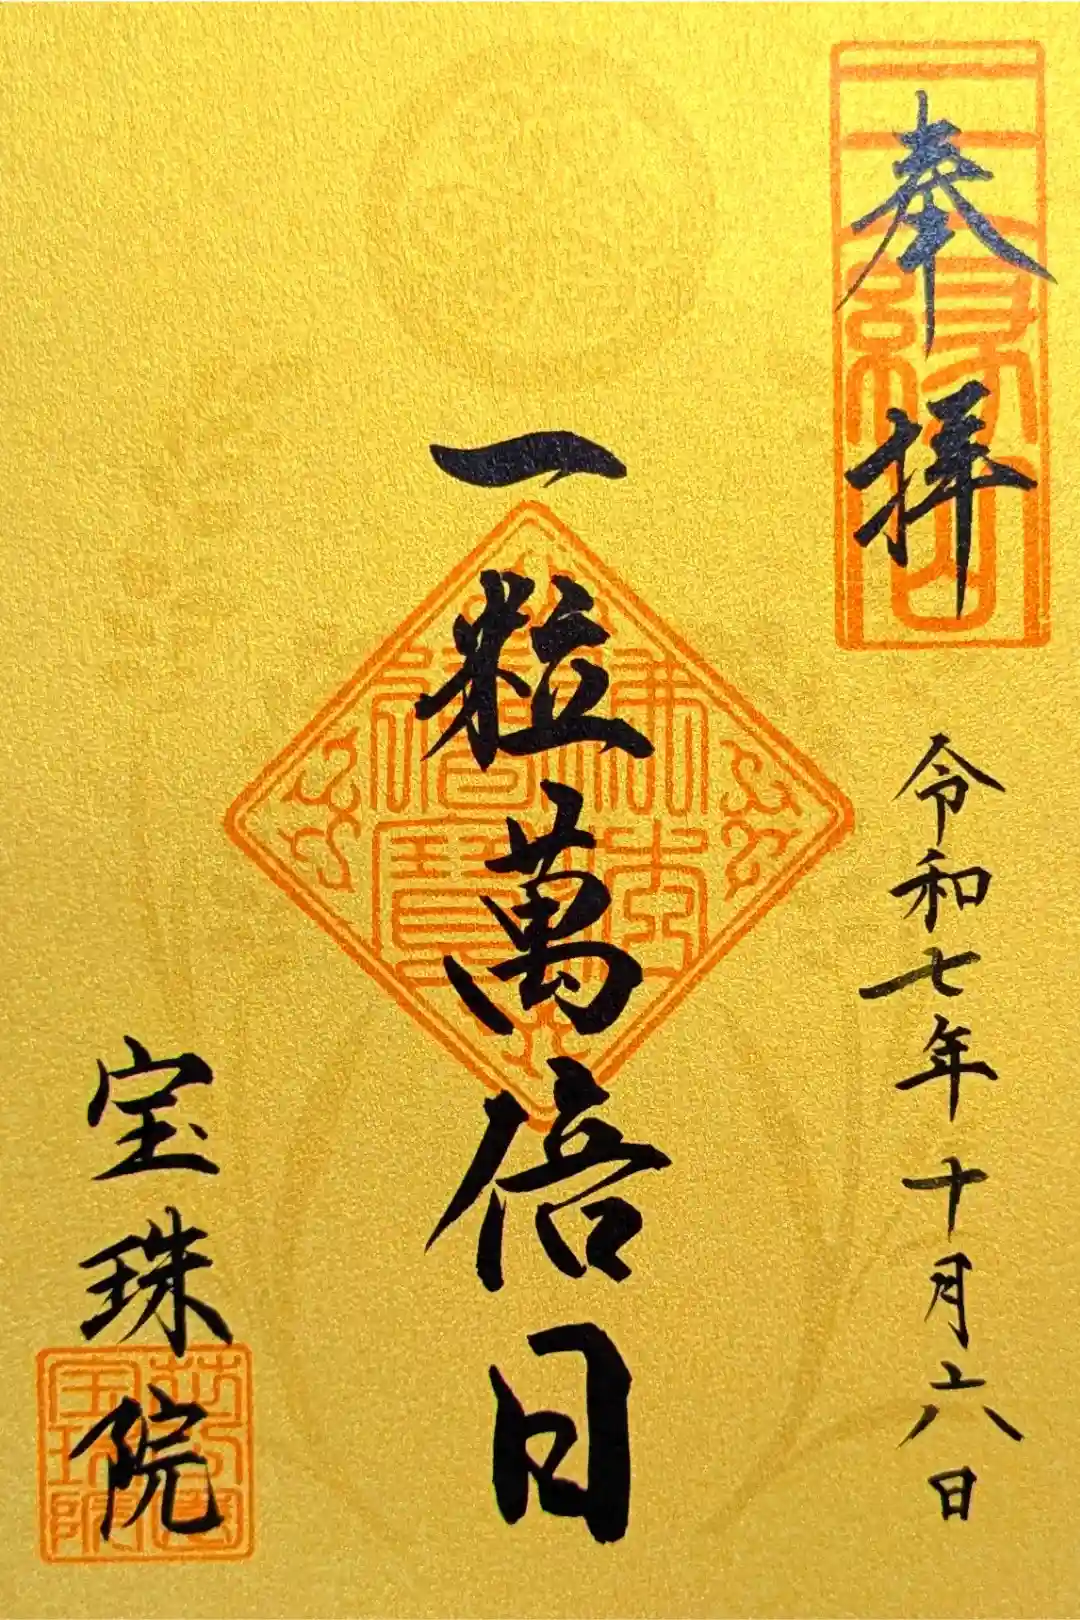 奉拝
令和七年十月六日
一粒萬倍日
宝珠院
三縁山